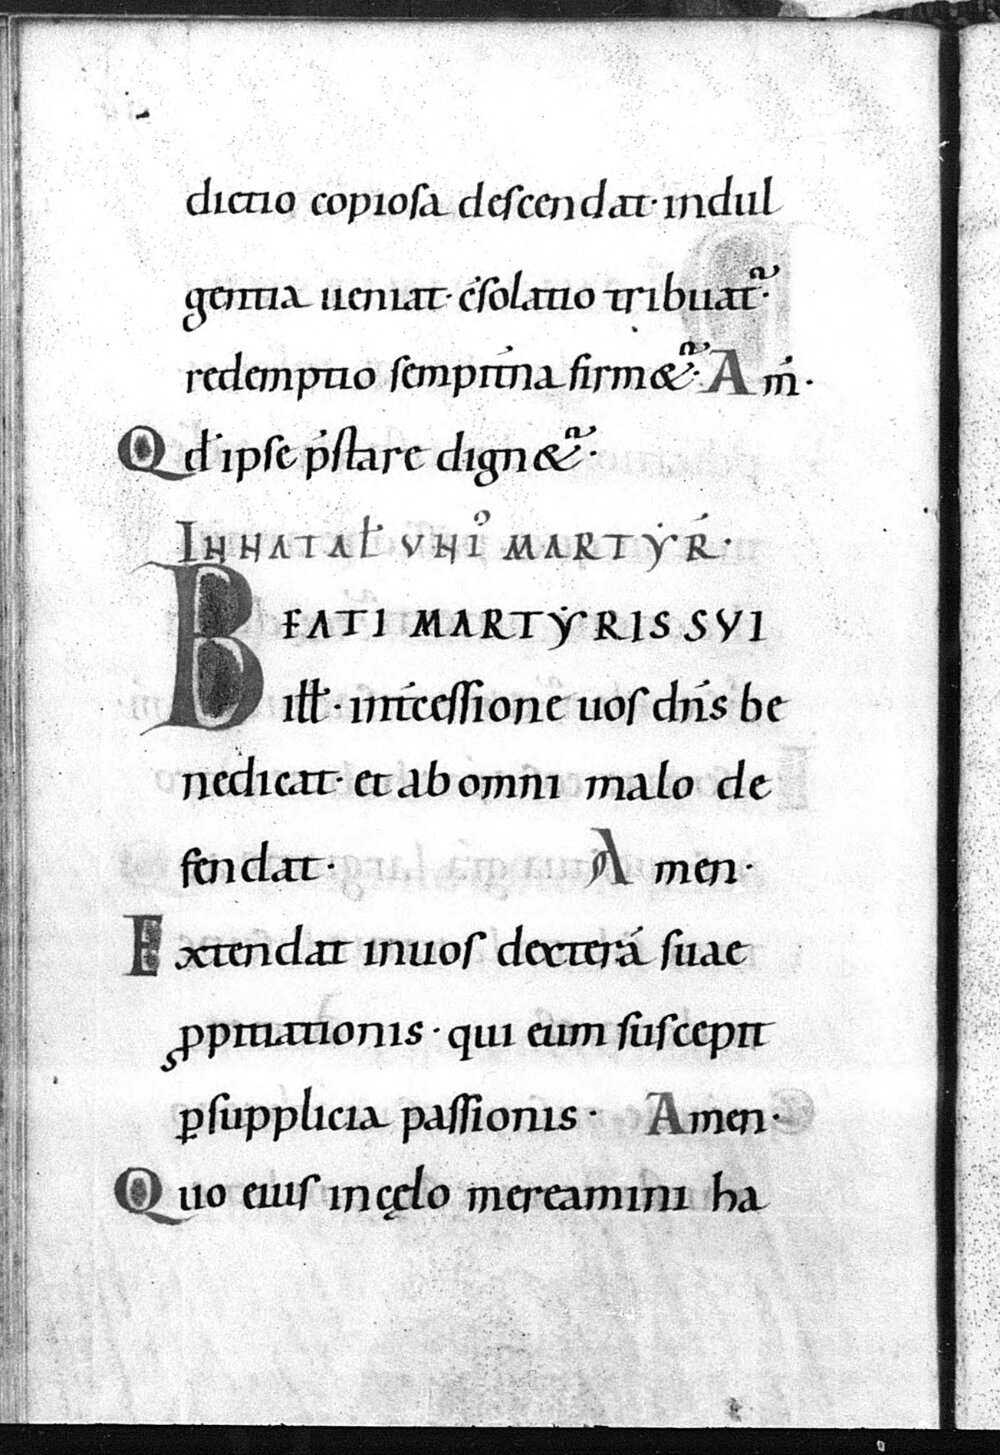 dictio copiosa descendat· indul
gentia ueniat· c̄solatio tribuat᷑·
redemptio sempit̄na firm&᷑· Am̄·
Qđ ipse p̄stare dign&᷑·
IN NATAƚ VNIꝰ MARTYR̄·
BEATI MARTYRIS SVI
iƚƚ· int̄cessione uos dn̄s be
nedicat· et ab omni malo de
fendat· Amen·
Extendat in uos dexterā suae
ꝓpitiationis· qui eum suscepit
ꝑ supplicia passionis· Amen·
Quo eius in cęlo mereamini ha